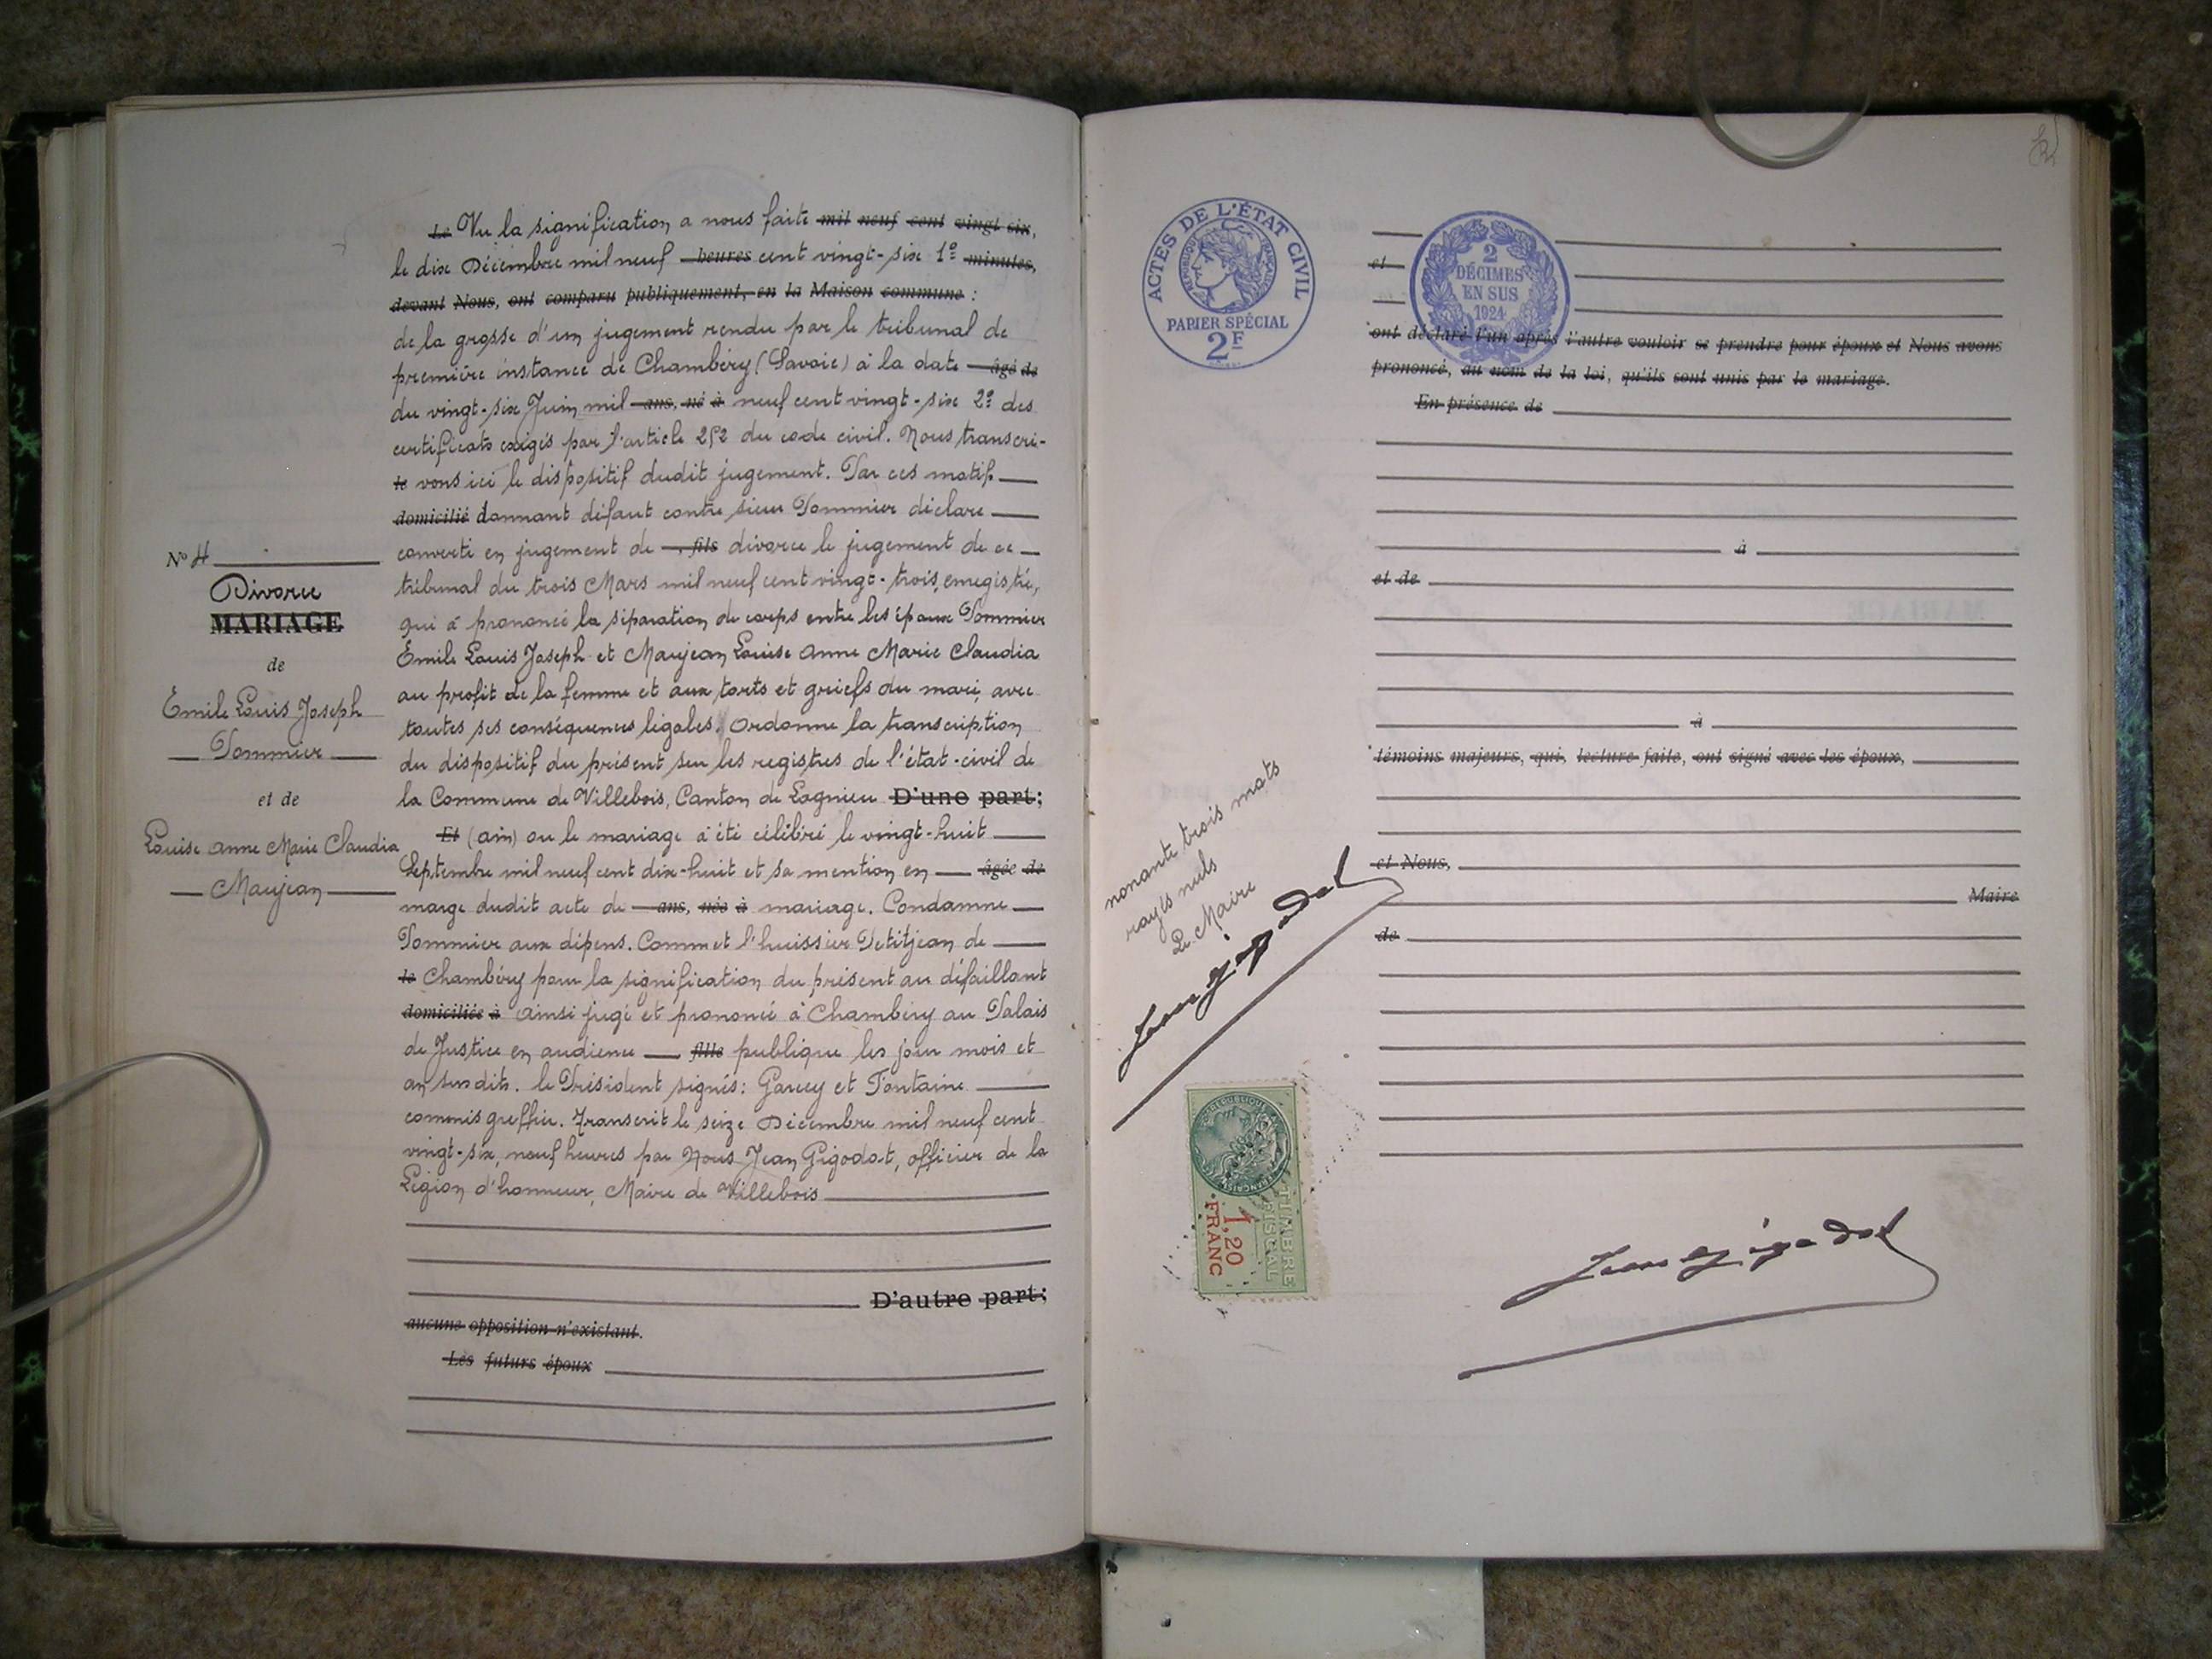 Le Vu la signification a nous faite mil neuf cent vingt six,
le dix Décembre mil neuf heures cent vingt-six 1º minutes,
devant Nous, ont comparu publiquement, en la Maison commune :
de la grosse d'un jugement rendu par le tribunal de
première instance de Chambéry (Savoie) à la date âgé de
du vingt-six Juin mil ans, né à neuf cent vingt-six 2º des
certificats exigés par l'article 252 du code civil. Nous transcri-
le vons ici le dispositif dudit jugement. Par ces motifs
domicilié donnant défaut contre sieur Pommier déclare
converti en jugement de , fils divorce le jugement de ce
tribunal du trois Mars mil neuf cent vingt-trois, enregistré,
qui a prononcé la séparation de corps entre les époux Pommier
Emile Louis Joseph et Maujean Louise Anne Marie Claudia
au profit de la femme et aux torts et griefs du mari, avec
toutes ses conséquences légales. Ordonne la transcription
du dispositif du présent sur les registres de l'état-civil de
la Commune de Villebois, Canton de Lagnieu D'une part;
Et (ain) ou le mariage a été célébré le vingt-huit
Septembre mil neuf cent dix-huit et sa mention en âgée de
marge dudit acte de ans, née à mariage. Condamne
Pommier aux dépens. Commet l'huissier Petitjean de
le Chambéry pour la signification du présent au défaillant
domiciliée à ainsi jugé et prononcé à Chambéry au Palais
de Justice en audience fille publique les jour mois et
an susdits. le Président signés: Garcey et Fontaine
commis greffier. Transcrit le seize Décembre mil neuf cent
vingt-six, neuf heures par Nous Jean Gigodot, officier de la
Légion d'honneur, Maire de Villebois
D'autre part;
aucune opposition n'existant.
Les futurs époux
Nº 4
Divorce
MARIAGE
de
Emile Louis Joseph
Pommier
et de
Louise Anne Marie Claudia
Maujean
ACTES DE L'ÉTAT CIVIL
RÉPUBLIQUE FRANÇAISE
PAPIER SPÉCIAL
2F
2
DÉCIMES
EN SUS
1924
et
ont déclaré l'un après l'autre vouloir se prendre pour époux et Nous avons
prononcé, au nom de la loi, qu'ils sont unis par le mariage.
En présence de
à
et de
à
témoins majeurs, qui, lecture faite, ont signé avec les époux,
et Nous,
Maire
de
nonante trois mots
rayés nuls
Le Maire
Jean Gigodot
TIMBRE
FISCAL
1,20
FRANC
Jean Gigodot